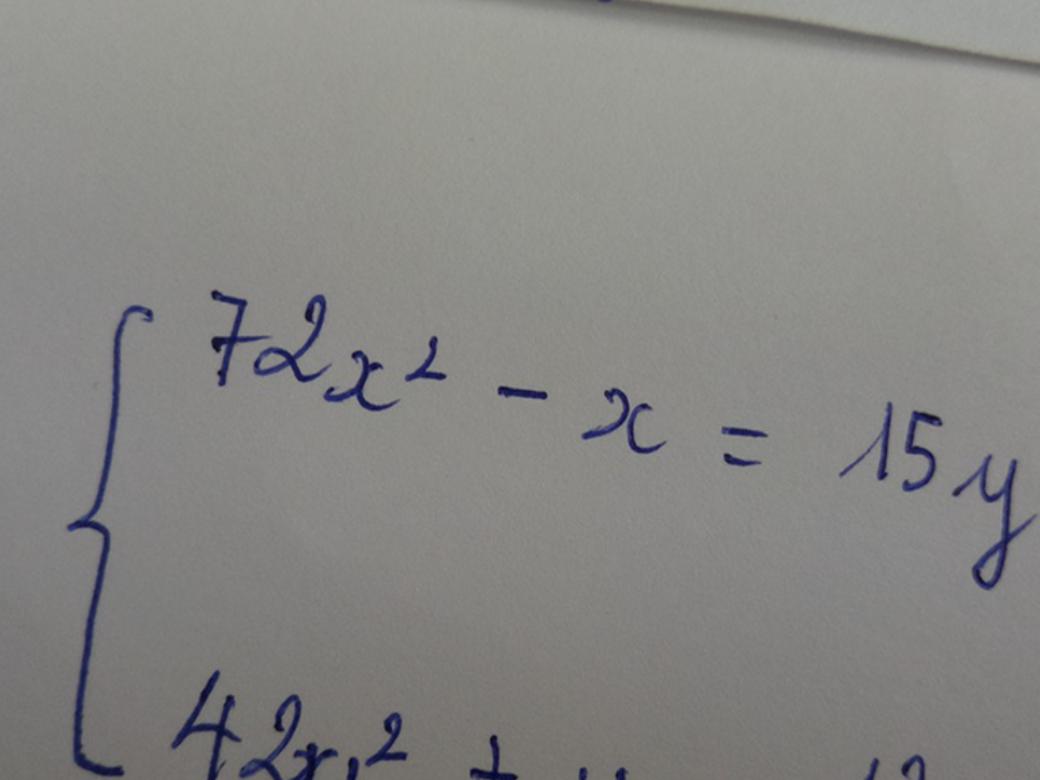 72x² - x = 15y
42x²